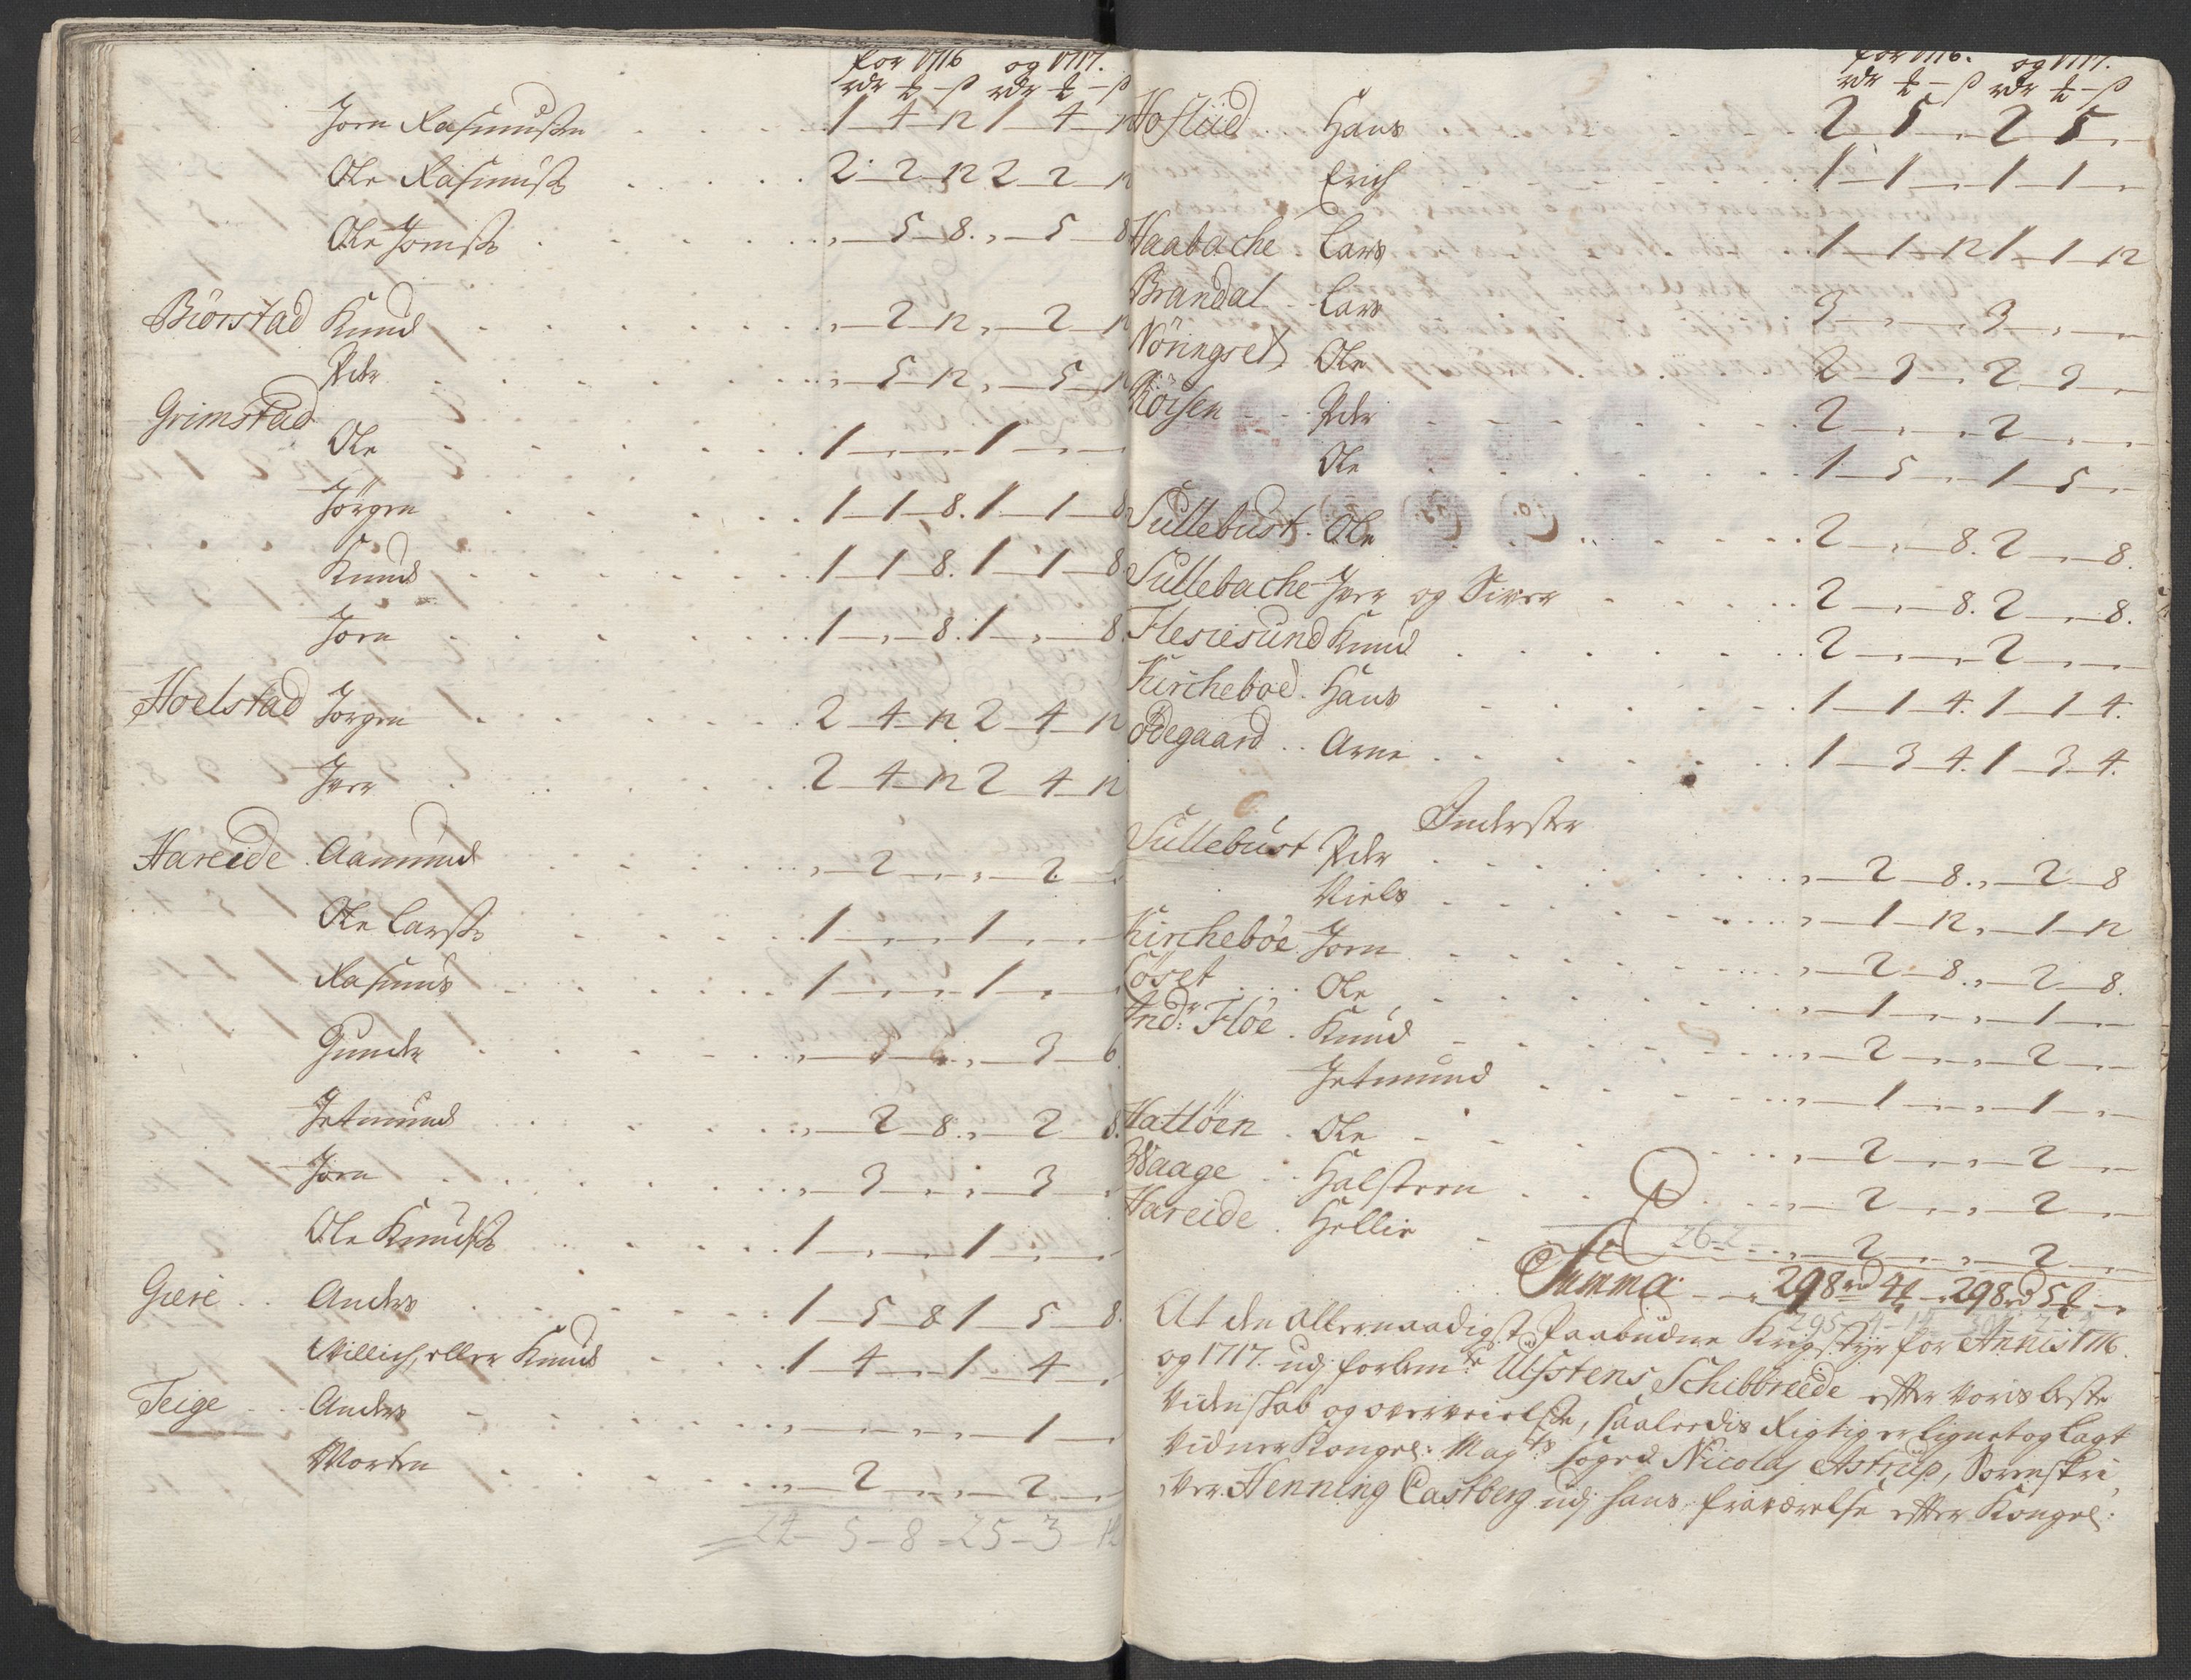 for 1716 og 1717.
rdr ß rdr ß
Jorn Rasmusen 1 4 12 1 4 12
Ole Rasmuss 2 2 12 2 2 12
Ole Jornss „ 5 8. „ 5 8
Biörstad Knud „ 2 12 „ 2 12
Peder „ 5 12 „ 5 12
Grimstad
Ole 1 „ „ 1 „ „
Jörgen 1 1 8. 1 1 8
Knud 1 1 8. 1 1 8.
Jorn 1 „ 8. 1 „ 8.
Hoelstad Jörgen 2 4 12 2 4 12
Iver 2 4 12 2 4 12
Hareide Aamund „ 2 „ „ 2 „
Ole Larss 1 „ „ 1 „ „
Rasmus 1 „ „ 1 „ „
Gunder „ „ 3 6
Jetmund „ 2 8. „ 2 8.
Jorn „ 3 „ „ 3 „
Ole Knuds 1 „ „ 1 „ „
Giere Anders 1 5 8 1 5 8.
Willich, eller Knud 1 4 „ 1 4 „
Teige Anders „ „ „ „ 1 „
Morten „ 2 „ „ 2 „
24 - 5 - 8 - 25 - 3 - 12
for 1716. og 1717.
rdr ß rdr ß
Hoflid Hans 2 5 „ 2 5 „
Erich 1 1 „ 1 1 „
Haabache Lars 1 1 12 1 1 12
Brandal Lars 3 „ „ 3 „ „
Nöringset Ole 2 3 „ 2 3 „
Röisen Peder 2 „ „ 2 „ „
Ole 1 5 „ 1 5 „
Sullebust Ole 2 „ 8. 2 „ 8.
Sullebache Iver og Siver 2 „ 8. 2 „ 8.
Flesiesund Knud 2 „ „ 2 „ „
Kircheboe Hans 1 1 4. 1 1 4.
Ødegaard Arne 1 3 4. 1 3 4.
Inderster
Sullebust Peder „ 2 8. „ 2 8
Niels „ 1 12 „ 1 12
Kircheböe Jorn „ 2 8. „ 2 8.
Löset Ole „ 1 „ „ 1 „
Indr: Flöe Knud „ 2 „ „ 2 „
Jetmund „ 1 „ „ 1 „
Hatlöen Ole „ 2 „ „ 2 „
Waage Halsteen „ 2 „ „ 2 „
Hareide Hellie „ 2 „ „ 2 „
26-2
Summa 298 rd 4 298 rd 5
At den allernaadigst Paabudne Krigs Styr for Annis 1716.
og 1717. udj forbemte Ulfstens Schibbreede efter Voris beste
Videnskab og overveielse, saaleedis Rigtig er lignet og lagt
Vidner Kongel: Mayts foged Nicolaj Astrup, Sorenskri
ver Henning Castberg udj hans fraværelse efter Kongel: